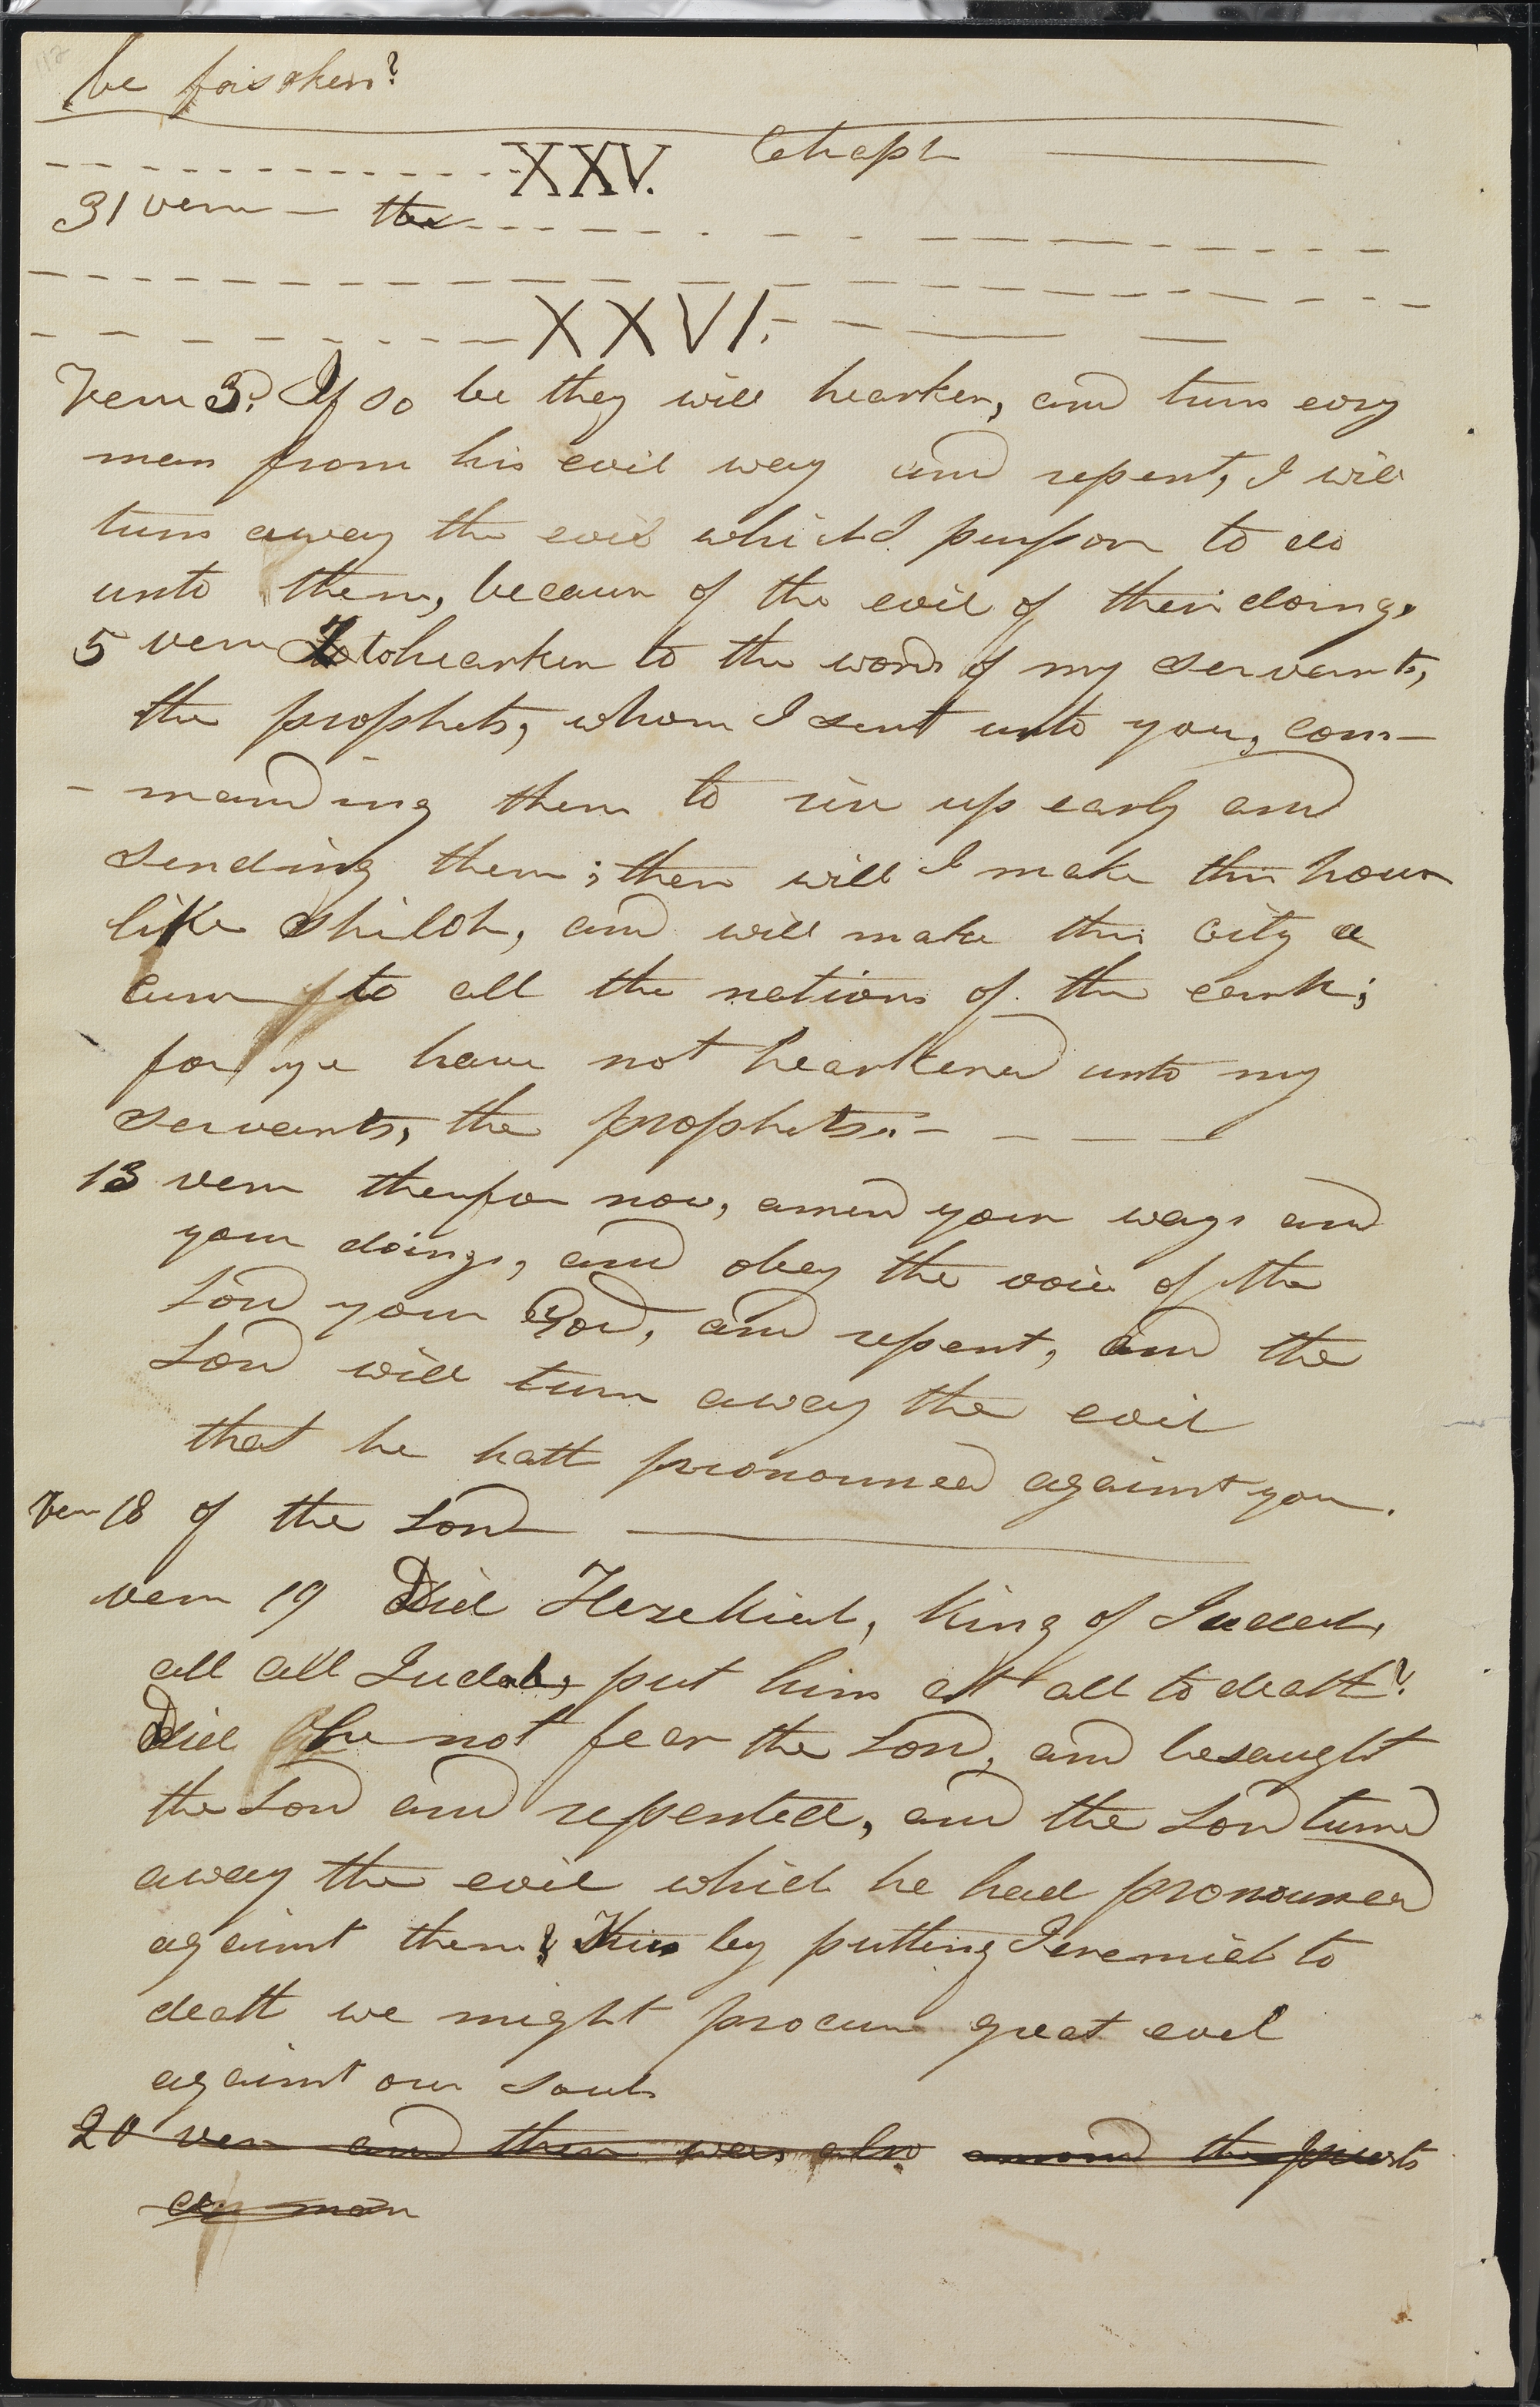 be forsaken?
XXV. Chapt
31 verse — the
XXVI.
Verse 3. If so be they will hearken, and turn evry
man from his evil way and repent, I will
turn away the evil which I purpose to do
unto them, because of the evil of their doings.
5 verse To hearken to the words of my servants,
the prophets, whom I sent unto you, com-
-manding them to rise up early and
sending them; then will I make this house
like Shiloh, and will make this city a
curse to all the nations of the earth;
for ye have not hearkened unto my
servants, the prophets.
13 verse therefore now, amend your ways and
your doings, and obey the voice of the
Lord your God, and repent, and the
Lord will turn away the evil
that he hath pronounced against you.
Ver 18 of the Lord
verse 19 Did Hezekiah, King of Judah,
all all Judah, put him at all to death?
Did he not fear the Lord, and besaught
the Lord and repented, and the Lord turned
away the evil which he had pronounced
against them? Thus by putting Jeremiah to
death we might procure great evil
against our souls
20 ver and there was also amond the priests
a man